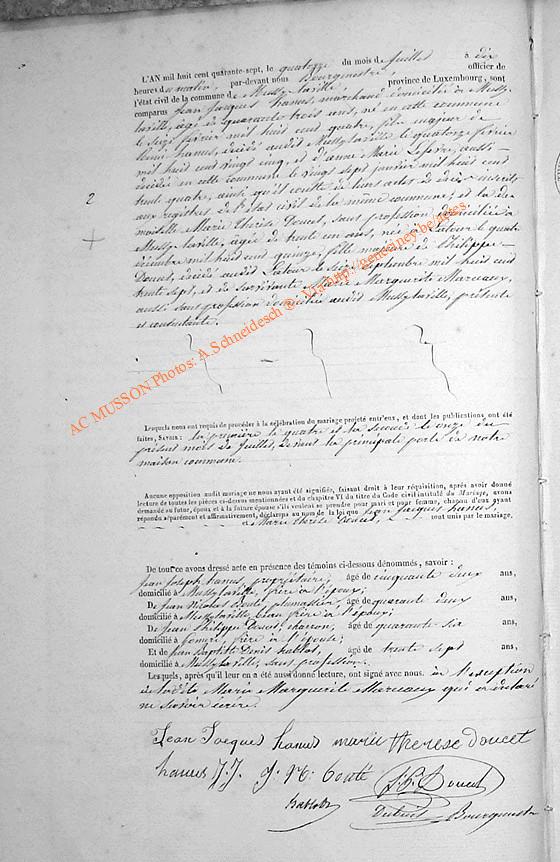 L'AN mil huit cent quarante-sept, le quatorze du mois de Juillet à dix
heures du matin, par-devant nous Bourgmestre officier de
l'état civil de la commune de Mussy-laville province de Luxembourg, sont
comparus Jean Jacques hanus, marchand domicilié à Mussy-
laville, âgé de quarante trois ans, né en cette commune
le seize février mil huit cent quatre, fils majeur de
hanus, décédé audit Mussylaville le quatorze février
mil huit cent vingt cinq, et d'anne Marie Lefevre, aussi
décédée en cette commune le vingt sept janvier mil huit cent
trente quatre, ainsi qu'il conste de leurs actes de décès inscrits
aux registres de l'état civil de la même commune; et la de-
moiselle Marie thérèse Doucet, sans profession, domiciliée à
Mussy-laville, âgée de trente un ans, née à Latour le quatre
décembre mil huit cent quinze, fille majeure de Philippe
Doucet, décédé audit Latour le seize septembre mil huit cent
trente sept, et de survivante Marie Marguerite Marceaux,
aussi sans profession domiciliée audit Mussylaville, présente
et consentante.
2
Lesquels nous ont requis de procéder à la célébration du mariage projeté entr'eux, et dont les publications ont été
faites, SAVOIR : la première le quatre et la seconde le onze du
présent mois de Juillet, devant la principale porte de notre
maison commune.
Aucune opposition audit mariage ne nous ayant été signifiée, faisant droit à leur réquisition, après avoir donné
lecture de toutes les pièces ci-dessus mentionnées et du chapitre VI du titre du Code civil intitulé du Mariage, avons
demandé au futur, époux et à la future épouse s'ils veulent se prendre pour mari et pour femme, chacun d'eux ayant
répondu séparément et affirmativement, déclarons au nom de la loi que Jean Jacques hanus,
et Marie thérèse Doucet, sont unis par le mariage.
De tout ce avons dressé acte en présence des témoins ci-dessous dénommés, savoir :
Jean Joseph hanus, propriétaire; âgé de cinquante deux ans,
domicilié à Mussylaville, frère à l'époux;
De Jean Nicolas âgé de quarante deux ans,
domicilié à Mussylaville, beau frère à l'époux;
De Jean Philippe Doucet, charron, âgé de quarante six ans,
domicilié à frère à l'épouse;
Et de Jean Baptiste Denis hablot, âgé de trente sept ans,
domicilié à Mussylaville, sans profession.
Lesquels, après qu'il leur en a été aussi donné lecture, ont signé avec nous à l'exception
de ladite Marie Marguerite Marceaux qui a déclaré
ne savoir écrire.
Jean Jacques hanus marie therese doucet
hanus J.J. J. N. J.P. Doucet
hablot Bourgmestre
AC MUSSON Photos: A.Schneidesch ® Via http://geneal.ney.be/actes